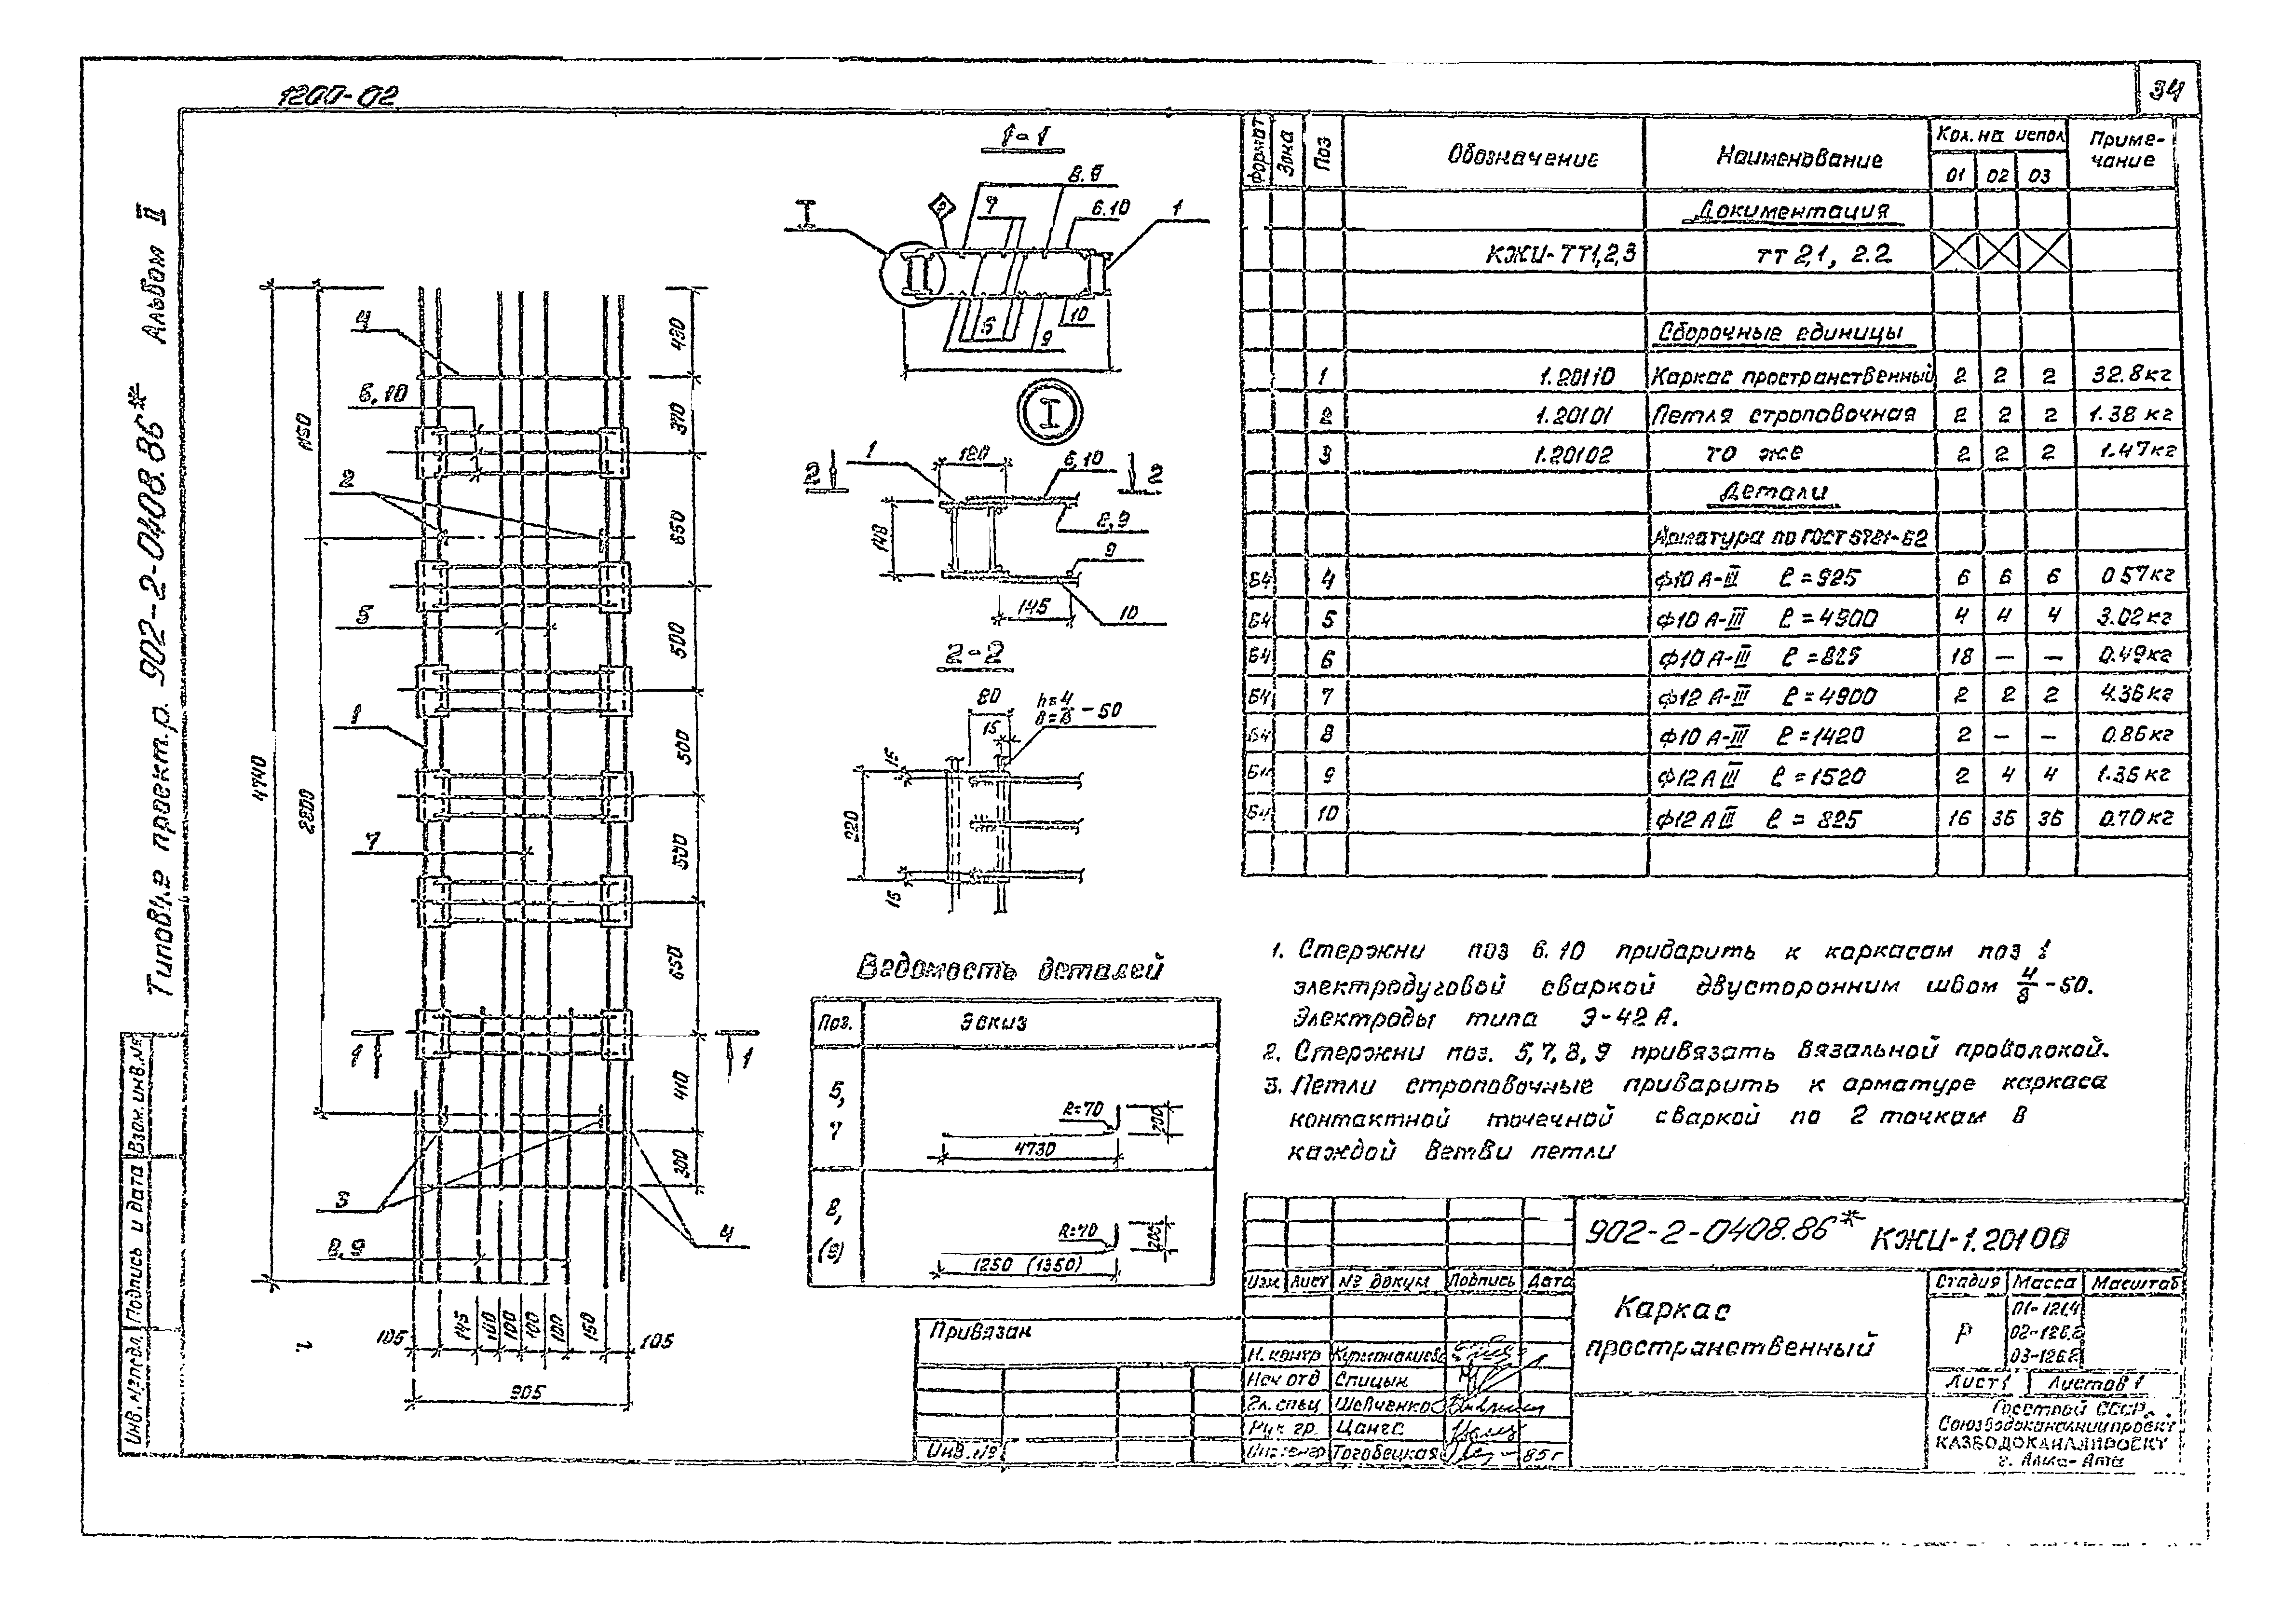 1200-02
34
Альбом II
Типовые проект.р. 902-2-0408.86*
Взам. инв. №
Подпись и дата
Инв. № подл.
1-1
8.9
7
6.10
1
I
10
9
I
1
180
6,10
2
2
148
8,9
9
145
10
2-2
80
h=4
в=8 -50
15
15
220
15
4
6,10
2
5
1
7
3
8,9
4
1
1
1150
4740
2800
480
370
650
500
500
500
650
410
300
105
145
100
100
100
100
150
105
905
Ведомость деталей
Поз. Эскиз
5,
7
R=70
200
4730
8,
(9)
R=70
200
1250 (1350)
Формат Зона Поз Обозначение Наименование Кол. на испол Приме-
чание
01 02 03
Документация
КЖИ-ТТ1,2,3 ТТ 2,1, 2.2
Сборочные единицы
1 1.20110 Каркас пространственный 2 2 2 32.8кг
2 1.20101 Петля строповочная 2 2 2 1.38 кг
3 1.20102 то же 2 2 2 1.47кг
Детали
Арматура по ГОСТ 5781-82
Б4 4 ф10 А-III ℓ=925 6 6 6 0 57кг
Б4 5 ф10 А-III ℓ=4900 4 4 4 3.02кг
Б4 6 ф10 А-III ℓ=825 18 — — 0.49кг
Б4 7 ф12 А-III ℓ=4900 2 2 2 4.36кг
Б4 8 ф10 А-III ℓ=1420 2 — — 0.86кг
Б4 9 ф12 А III ℓ=1520 2 4 4 1.36кг
Б4 10 ф12 А III ℓ= 825 16 36 36 0.70кг
1. Стержни поз 6.10 приварить к каркасам поз 1
электродуговой сваркой двусторонним швом 4/8 -50.
Электроды типа Э-42А.
2. Стержни поз. 5,7,8,9 привязать вязальной проволокой.
3. Петли строповочные приварить к арматуре каркаса
контактной точечной сваркой по 2 точкам в
каждой ветви петли
902-2-0408.86* КЖИ-1.20100
Изм Лист № докум Подпись Дата
Каркас
пространственный
Стадия Масса Масштаб
Р
01-121.4
02-126.8
03-126.8
Лист 1 Листов 1
Н. контр
Нач отд Спицын
Гл. спец Шевченко
Рук гр.
Инженер Тоговецкая 85 г
Госстрой СССР
Союзводоканалниипроект
КАЗВОДОКАНАЛПРОЕКТ
г. Алма-Ата
Привязан
Инв. №